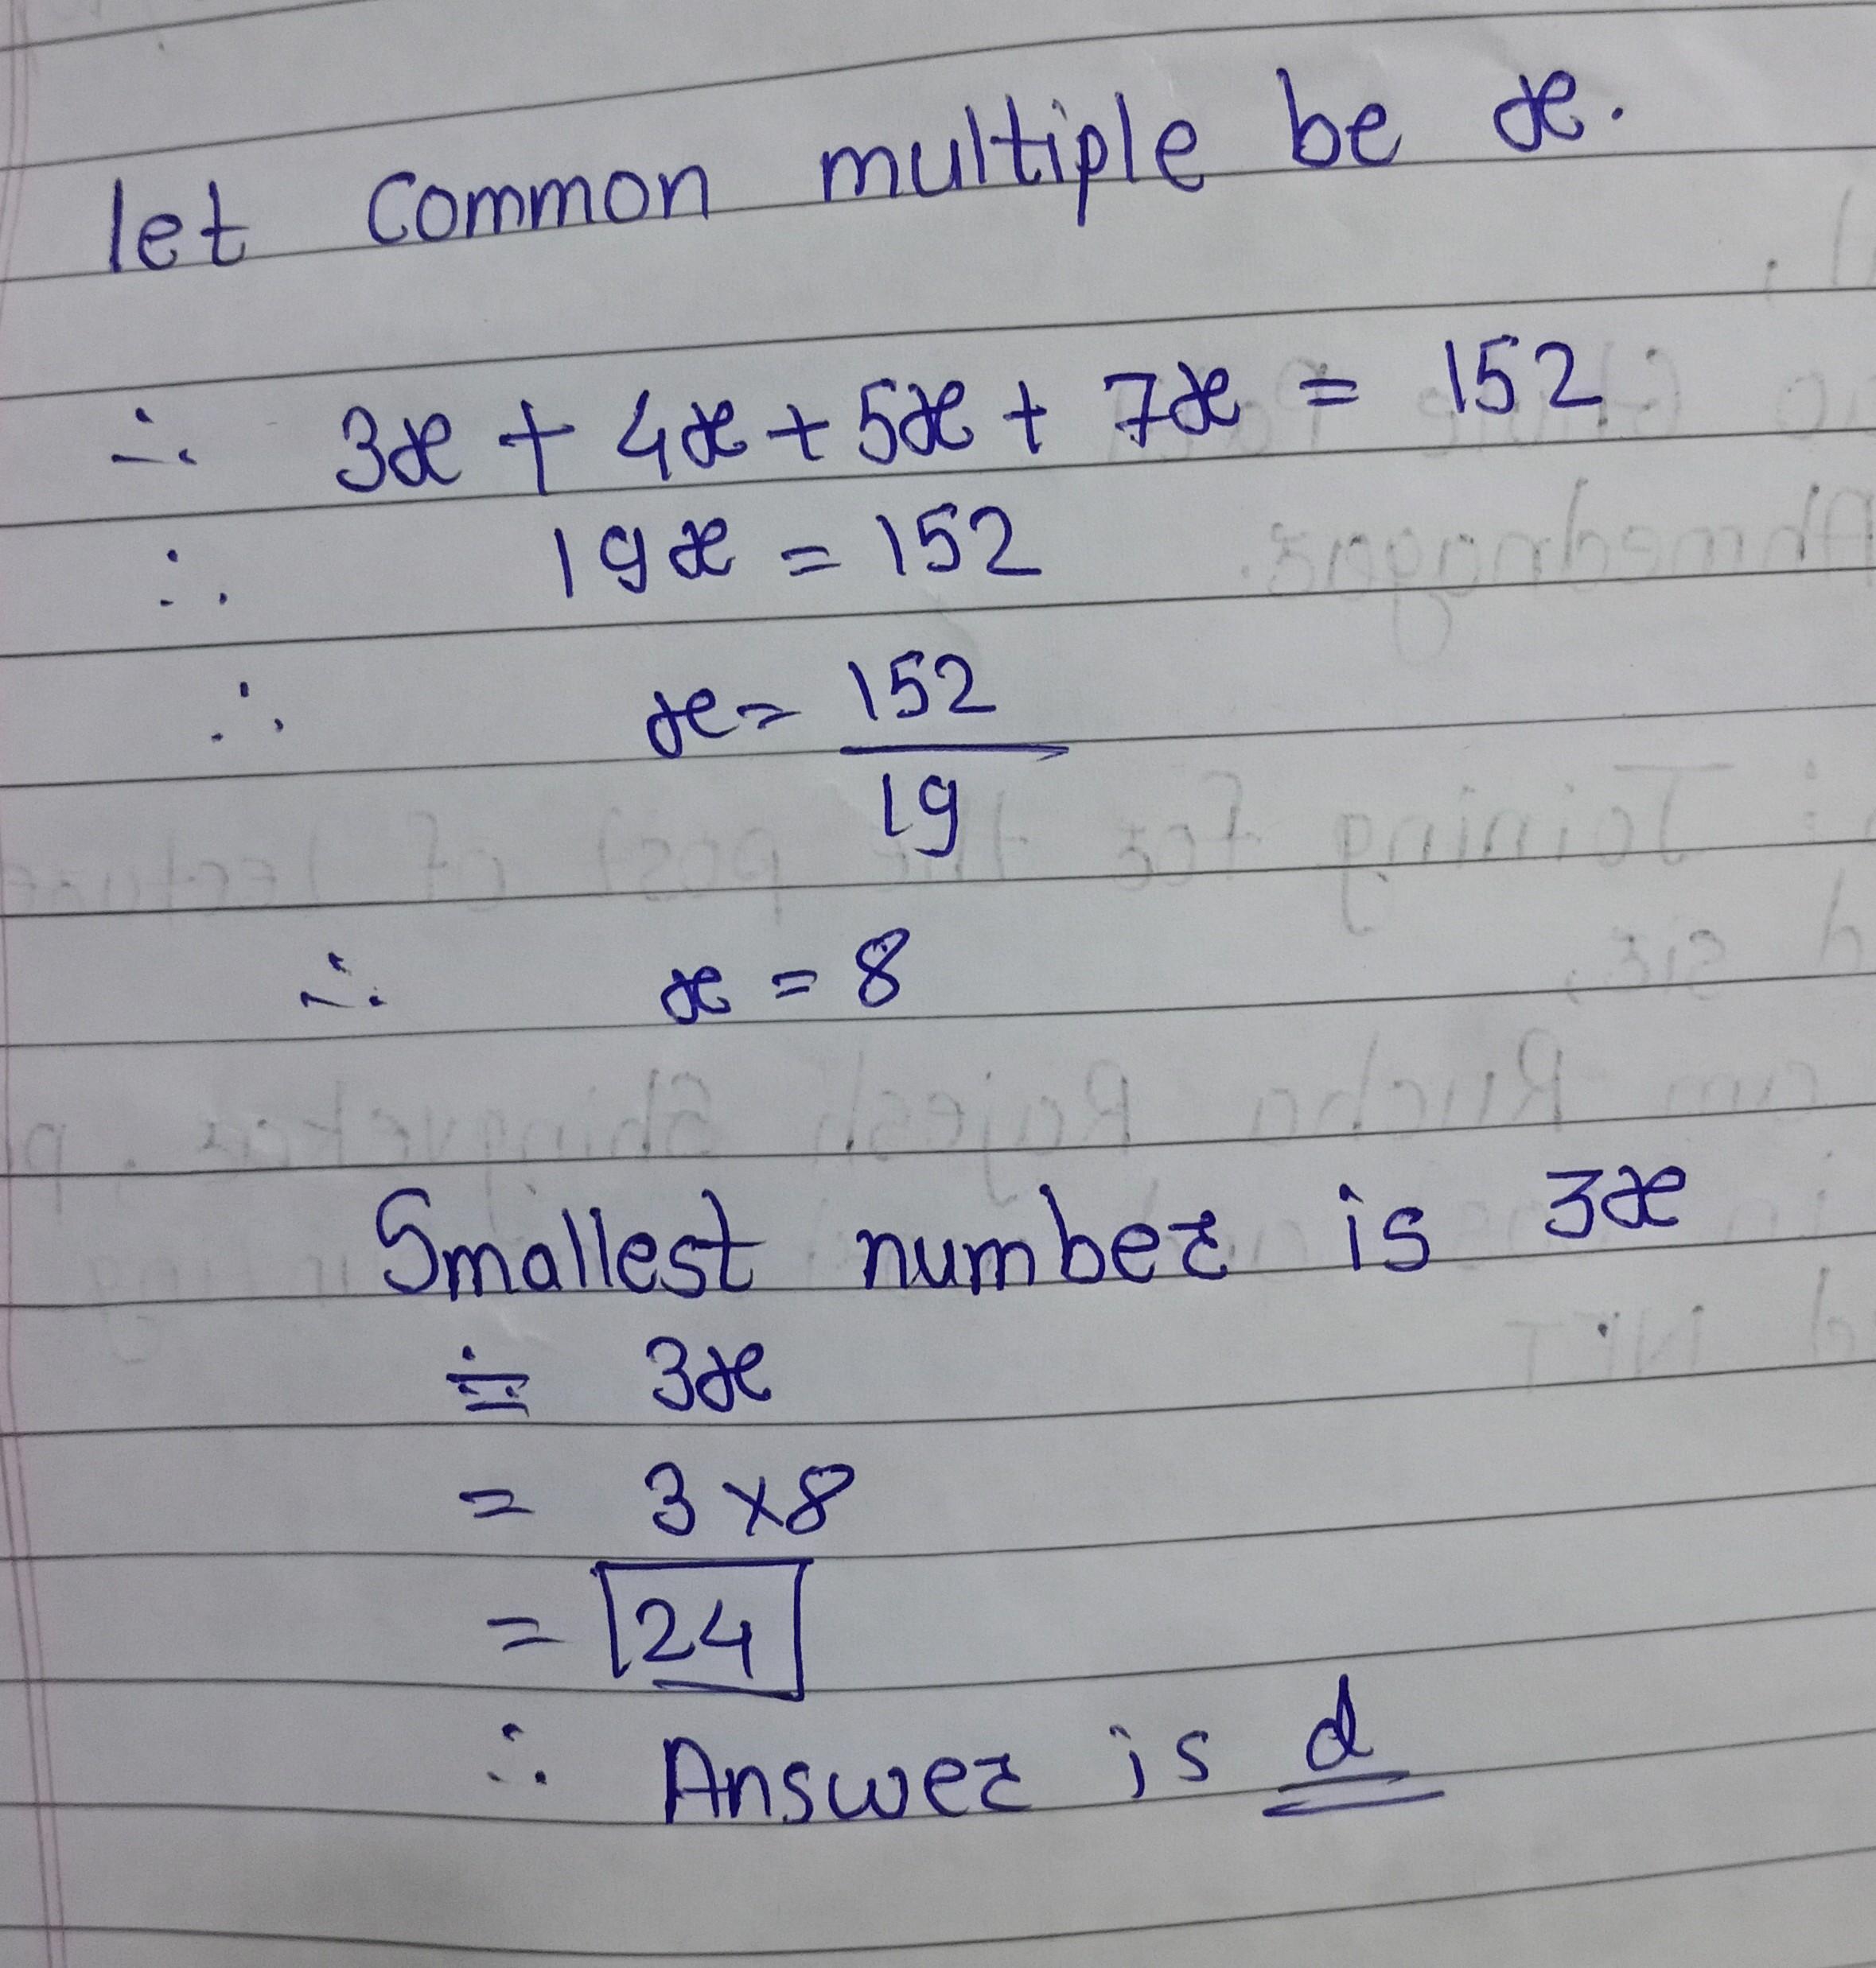 let common multiple be x.
∴ 3x + 4x + 5x + 7x = 152
∴ 19x = 152
∴ x = 152
19
∴ x = 8
Smallest number is 3x
= 3x
= 3 x 8
= 24
∴ Answer is d